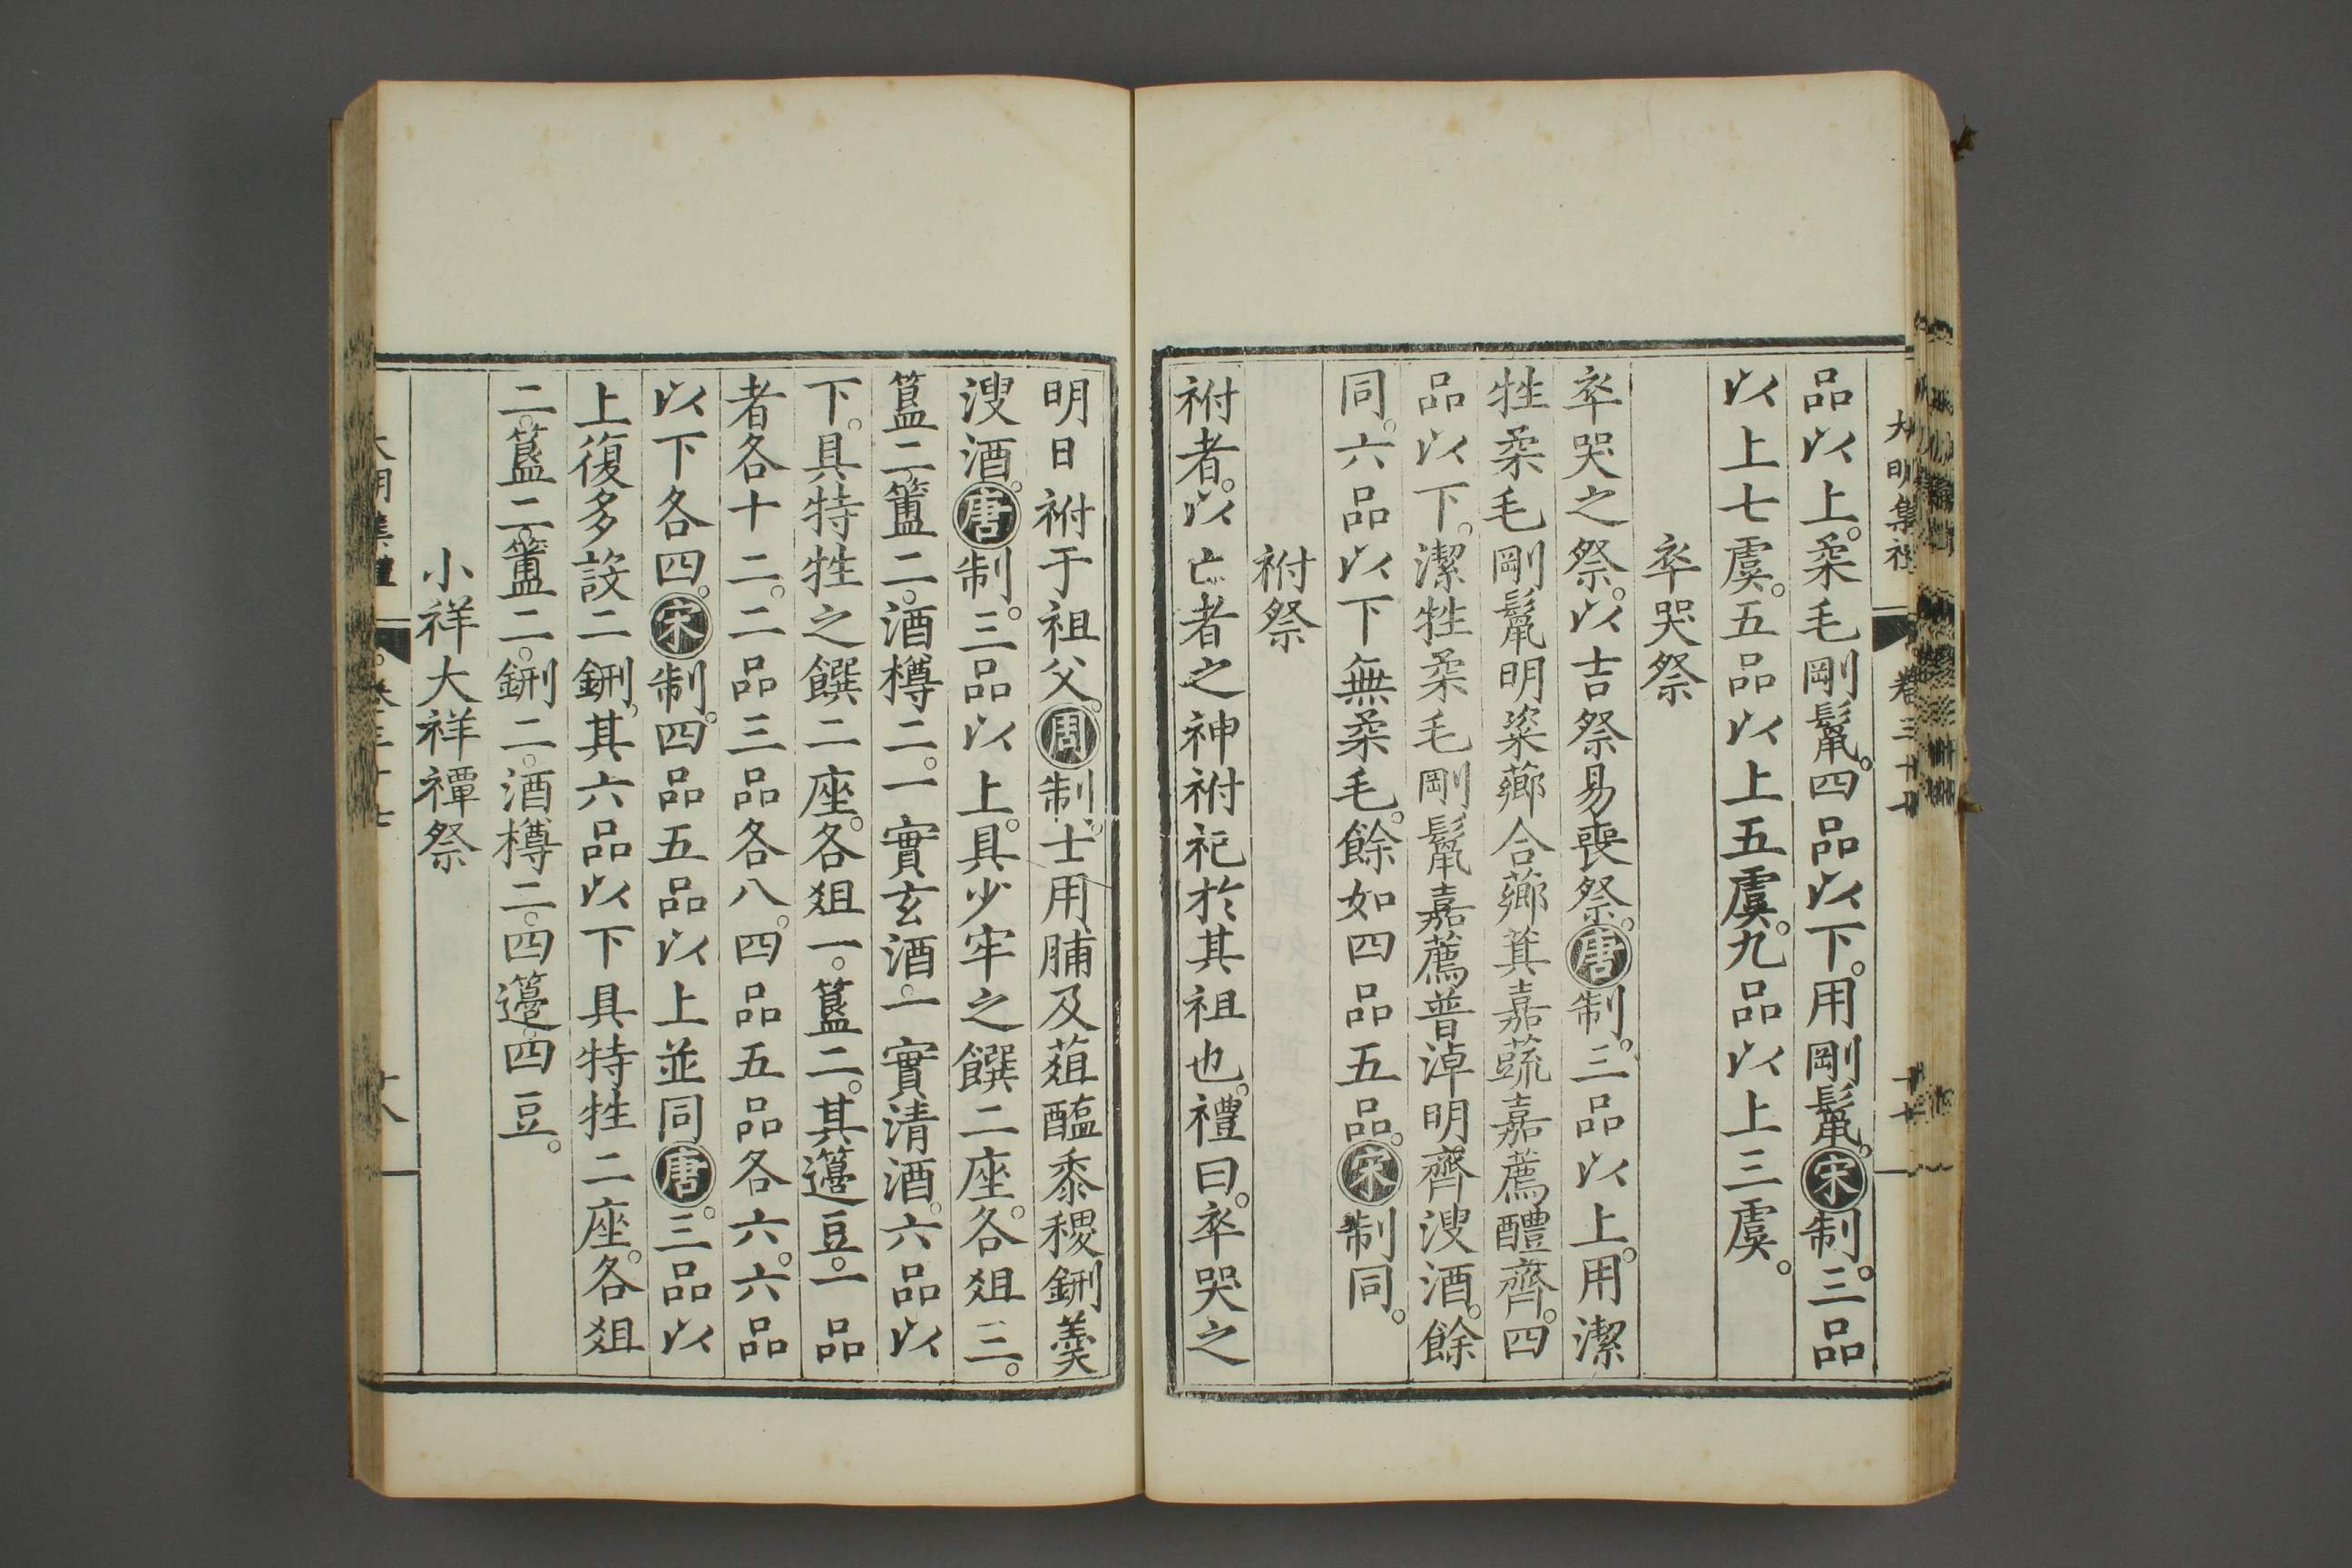 大明集禮 卷三十七 十七
品以上。柔毛剛鬣。四品以下。用剛鬣。宋制。三品
以上七虞。五品以上五虞。九品以上三虞。
卒哭祭
卒哭之祭。以吉祭易喪祭。唐制。三品以上。用潔
牲柔毛剛鬣明粢薌合薌萁嘉蔬嘉薦醴齊。四
品以下。潔牲柔毛剛鬣嘉薦普淖明齊溲酒。餘
同。六品以下無柔毛。餘如四品五品。宋制同。
祔祭
祔者。以亡者之神祔祀於其祖也。禮曰。卒哭之
明日祔于祖父。周制。士用脯及葅醢黍稷鉶羹
溲酒。唐制。三品以上。具少牢之饌二座。各爼三。
簋二。簠二。酒樽二。一實玄酒。一實清酒。六品以
下。具特牲之饌二座。各爼一。簋二。其籩豆。一品
者各十二。二品三品各八。四品五品各六。六品
以下各四。宋制。四品五品以上並同唐。三品以
上復多設二鉶。其六品以下具特牲二座。各爼
二。簋二。簠二。鉶二。酒樽二。四籩。四豆。
小祥大祥禫祭
大明集禮 卷三十七 十八